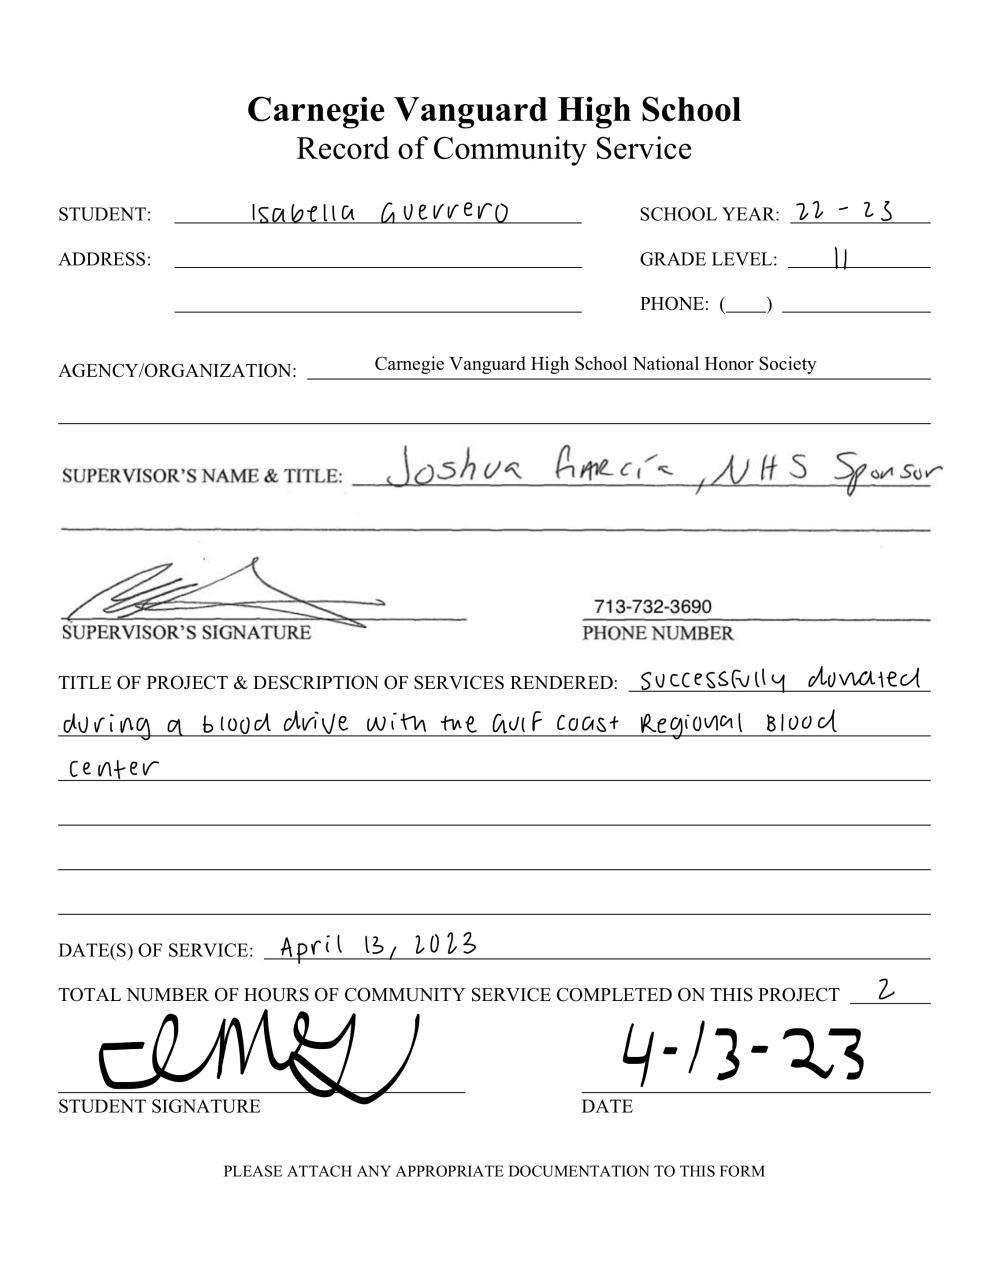 Carnegie Vanguard High School
Record of Community Service
STUDENT: Isabella Guerrero SCHOOL YEAR: 22 - 23
ADDRESS: GRADE LEVEL: 11
PHONE: (____)
AGENCY/ORGANIZATION: Carnegie Vanguard High School National Honor Society
SUPERVISOR'S NAME & TITLE: Joshua García, NHS Sponsor
713-732-3690
SUPERVISOR'S SIGNATURE PHONE NUMBER
TITLE OF PROJECT & DESCRIPTION OF SERVICES RENDERED: successfully donated
during a blood drive with the Gulf Coast Regional Blood
Center
DATE(S) OF SERVICE: April 13, 2023
TOTAL NUMBER OF HOURS OF COMMUNITY SERVICE COMPLETED ON THIS PROJECT 2
4-13-23
STUDENT SIGNATURE DATE
PLEASE ATTACH ANY APPROPRIATE DOCUMENTATION TO THIS FORM